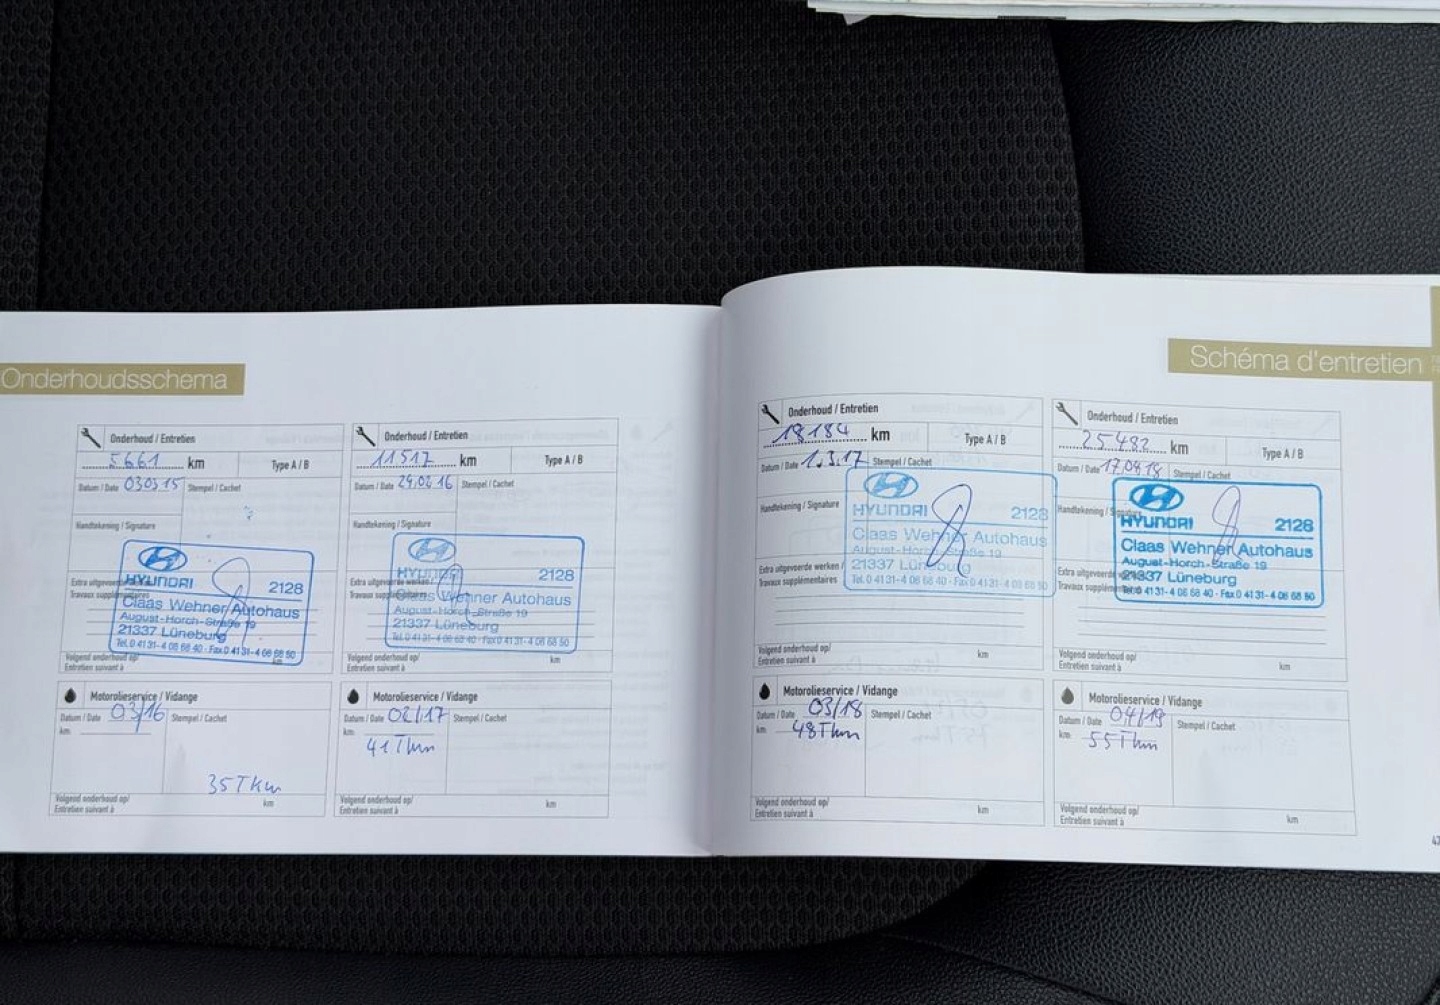 Onderhoudsschema
Onderhoud / Entretien
5661 km
Type A / B
Datum / Date 03.03.15
Stempel / Cachet
Handtekening / Signature
HYUNDAI 2128
Claas Wehner Autohaus
August-Horch-Straße 19
21337 Lüneburg
Tel. 0 41 31 - 4 06 68 40 - Fax 0 41 31 - 4 06 68 50
Extra uitgevoerde werken /
Travaux supplémentaires
Volgend onderhoud op/
Entretien suivant à
km
Motorolieservice / Vidange
Datum / Date 03/16
Stempel / Cachet
km
35 Tkm
Volgend onderhoud op/
Entretien suivant à
km
Onderhoud / Entretien
11517 km
Type A / B
Datum / Date
Stempel / Cachet
Handtekening / Signature
HYUNDAI 2128
Claas Wehner Autohaus
August-Horch-Straße 19
21337 Lüneburg
Tel. 0 41 31 - 4 06 68 40 - Fax 0 41 31 - 4 06 68 50
Extra uitgevoerde werken /
Travaux supplémentaires
Volgend onderhoud op/
Entretien suivant à
km
Motorolieservice / Vidange
Datum / Date 02/17
Stempel / Cachet
km
41 Tkm
Volgend onderhoud op/
Entretien suivant à
km
Schéma d'entretien
Onderhoud / Entretien
18184 km
Type A / B
Datum / Date 1.3.17
Stempel / Cachet
Handtekening / Signature
HYUNDAI 2128
Claas Wehner Autohaus
August-Horch-Straße 19
21337 Lüneburg
Tel. 0 41 31 - 4 06 68 40 - Fax 0 41 31 - 4 06 68 50
Extra uitgevoerde werken /
Travaux supplémentaires
Volgend onderhoud op/
Entretien suivant à
km
Motorolieservice / Vidange
Datum / Date 03/18
Stempel / Cachet
km 48 Tkm
Volgend onderhoud op/
Entretien suivant à
km
Onderhoud / Entretien
25482 km
Type A / B
Datum / Date
Stempel / Cachet
Handtekening / Signature
HYUNDAI 2128
Claas Wehner Autohaus
August-Horch-Straße 19
21337 Lüneburg
Tel. 0 41 31 - 4 06 68 40 - Fax 0 41 31 - 4 06 68 50
Extra uitgevoerde werken /
Travaux supplémentaires
Volgend onderhoud op/
Entretien suivant à
km
Motorolieservice / Vidange
Datum / Date 04/19
Stempel / Cachet
km 55 Tkm
Volgend onderhoud op/
Entretien suivant à
km